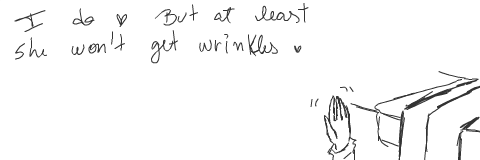 I do ♥ But at least
she won't get wrinkles ♥